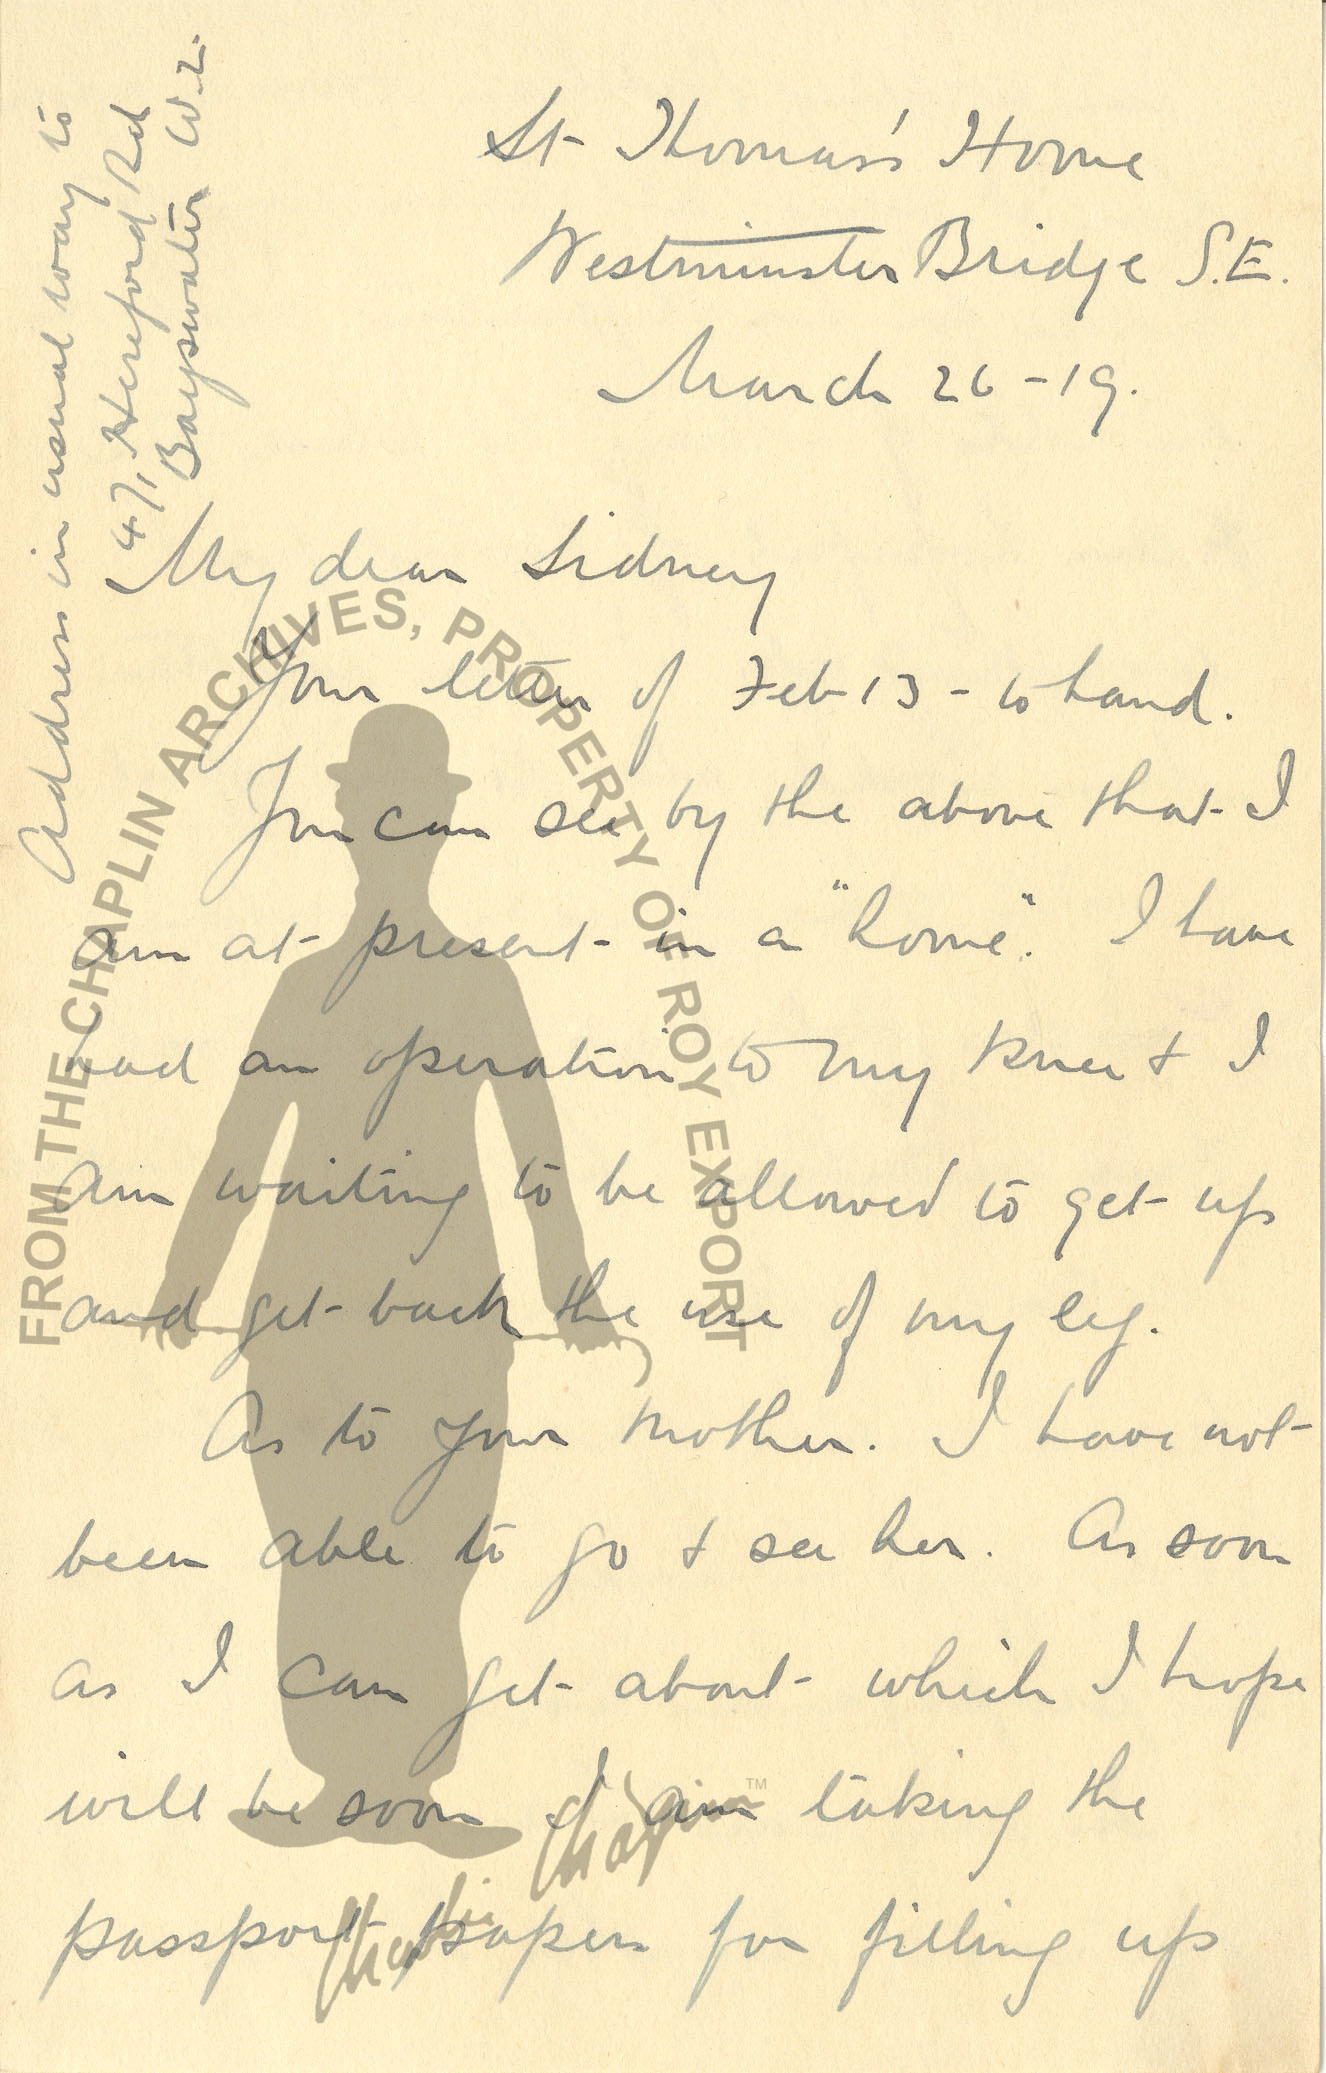 St Thomas's Home
Westminster Bridge S.E.
March 26 - 19.
Address in usual way to
47, Hereford Rd
Bayswater W.2.
My dear Sidney
Your letter of Feb 13 - to hand.
You can see by the above that I
am at present in a "home". I have
had an operation to my knee & I
am waiting to be allowed to get up
and get back the use of my leg.
As to your mother. I have not
been able to go & see her. As soon
as I can get about which I hope
will be soon I am taking the
passport papers for filling up
FROM THE CHAPLIN ARCHIVES, PROPERTY OF ROY EXPORT
Charlie Chaplin™